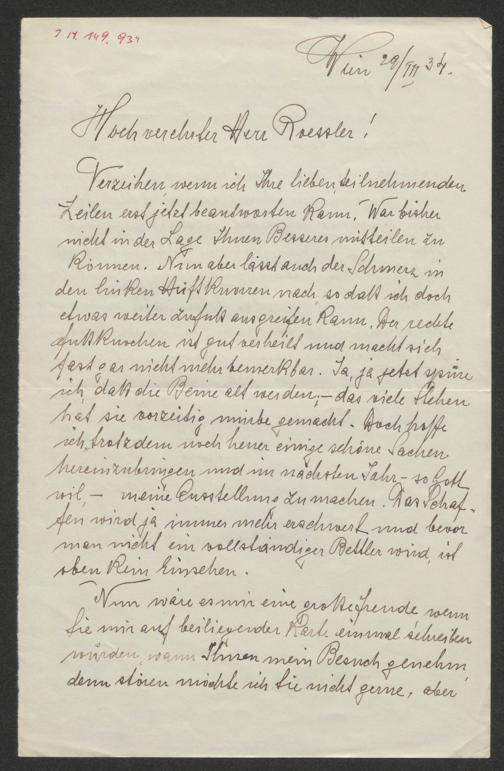 I.N. 149.934
Wien 29/III 34.
Hochverehrter Herr Roessler!
Verzeihen, wenn ich Ihre lieben teilnehmenden
Zeilen erst jetzt beantworten kann. War bisher
nicht in der Lage Ihnen Besseres mitteilen zu
können. Nun aber lässt auch der Schmerz in
den linken Hüftknorren nach, so daß ich doch
etwas weiter zu fuß ausgreifen kann. Der rechte
fußknochen ist gut verheilt und macht sich
fast gar nicht mehr bemerkbar. Ja, ja jetzt spüre
ich, daß die Beine alt werden, – das viele Stehen
hat sie vorzeitig mürbe gemacht. Doch hoffe
ich trotzdem noch heuer einige schöne Sachen
hereinzubringen und im nächsten Jahr – so Gott
will – meine Ausstellung zu machen. Das Schaf-
fen wird ja immer mehr erschwert und bevor
man nicht ein vollständiger Bettler wird, ist
oben kein Einsehen.
Nun wäre es mir eine große freude wenn
Sie mir auf beiliegender Karte einmal schreiben
würden, wann Ihnen mein Besuch genehm
denn stören möchte ich Sie nicht gerne, aber